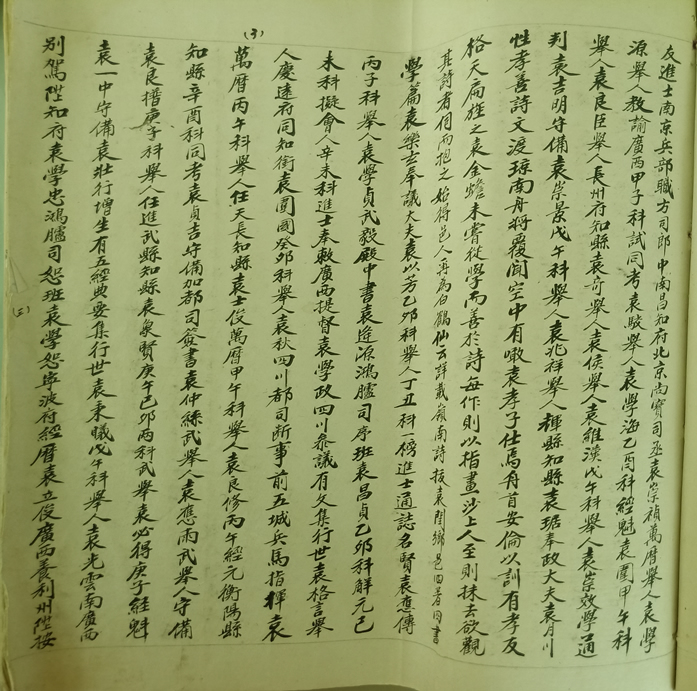 友進士南京兵部職方司郎中南昌知府北京尚寶司丞袁崇禎萬曆舉人袁學
源舉人教諭廣西甲子科試同考袁駿舉人袁學海乙酉科經魁袁圜甲午科
舉人袁良臣舉人長州府知縣袁奇舉人袁侯舉人袁維漢戊午科舉人袁崇效學通
判袁吉明守備袁崇景戊午科舉人袁兆祥舉人輝縣知縣袁琚奉政大夫袁月川
性孝善詩文渡瓊南舟將覆聞空中有嗷袁孝子仕焉舟首安倫以訓有孝友
格天扁旌之袁金蟾未嘗從學而善於詩每作則以指畫沙上人至則抹去欲觀
其詩者自而抱之始得邑人再為白鶴仙云詳載嶺南詩按袁閏鄉邑旧著内書
學篇袁樂玄奉議大夫袁以芳乙卯科舉人丁丑科一榜進士通誌名賢袁應傳
丙子科舉人袁學貞武毅殿中書袁逢源鴻臚司序班袁昌貞乙卯科解元己
未科擬會人辛未科進士奉敕廣西提督袁學政四川叅議有文集行世袁格言舉
人慶遠府同知銜袁圜國癸卯科舉人袁秋四川都司断事前五城兵馬指揮袁
萬曆丙午科舉人任天長知縣袁士俊萬曆甲午科舉人袁良修丙午經元衡陽縣
知縣辛酉科同考袁貞吉守備加都司簽書袁仲絲武舉人袁應雨武舉人守備
袁良搢庚子科舉人任進武縣知縣袁象賢庚午己卯兩科武舉袁必得庚子經魁
袁一中守備袁壯行增生有五經典要集行世袁秉曦戊午科舉人袁光雲南廣西
別駕陞知府袁學忠鴻臚司恕班袁學恕寧波府經曆袁立俊廣西養利州陞按
(3)
(三)